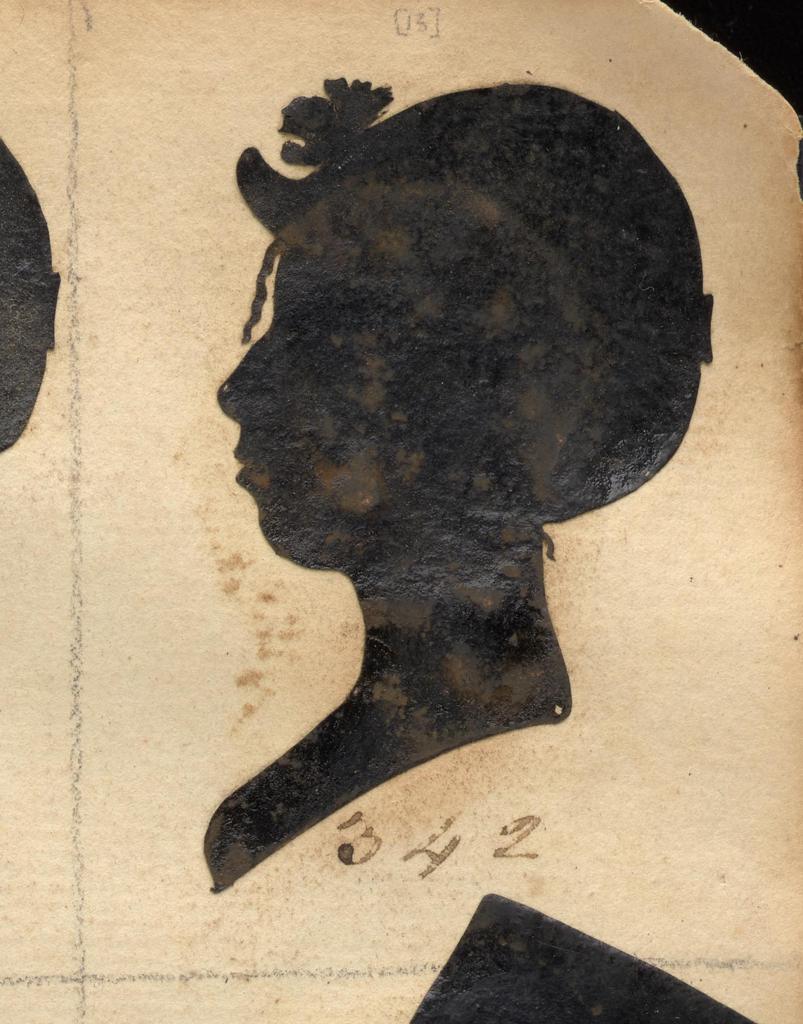 [13]
342